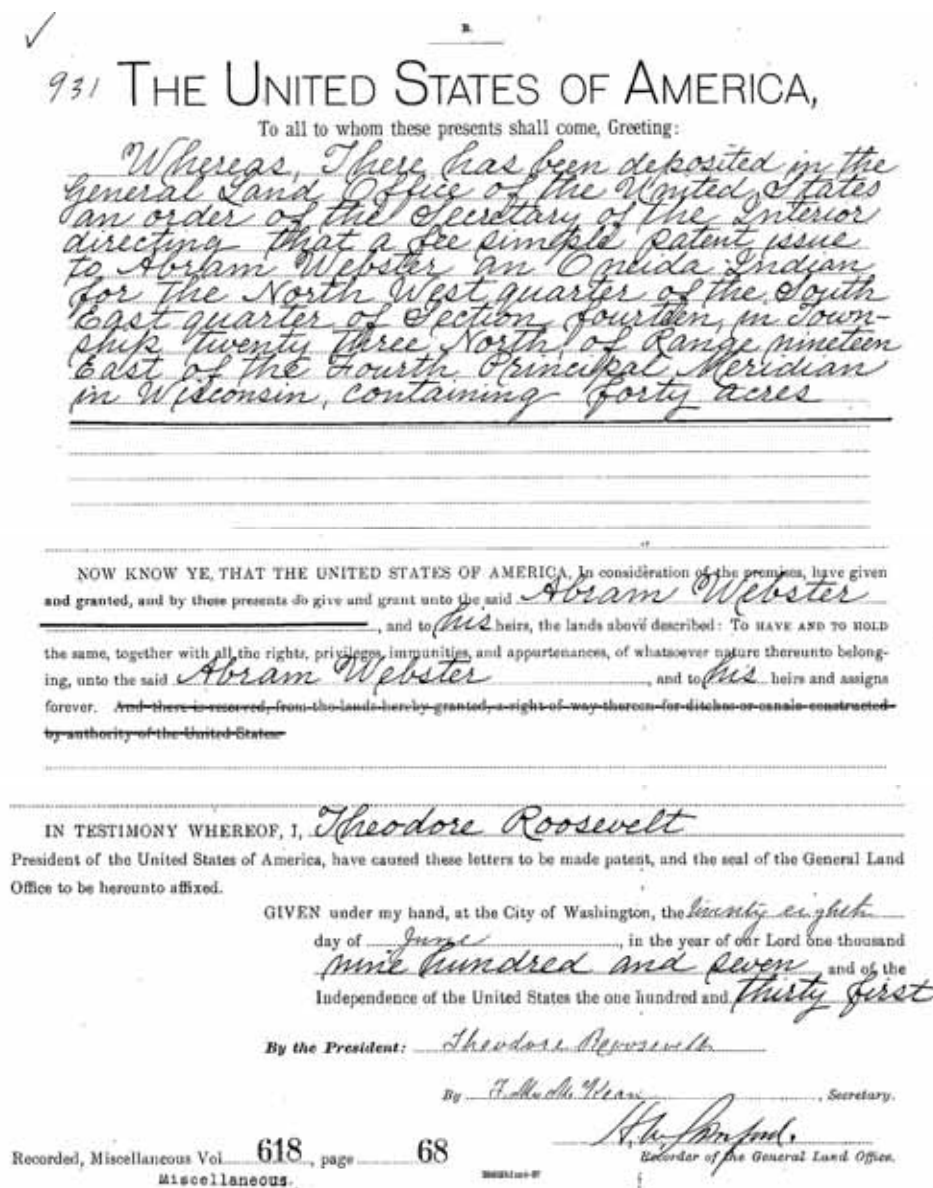 B.
931 THE UNITED STATES OF AMERICA,
To all to whom these presents shall come, Greeting:
Whereas, There has been deposited in the
General Land Office of the United States
an order of the Secretary of the Interior
directing that a fee simple patent issue
to Abram Webster an Oneida Indian
for the North West quarter of the South
East quarter of Section fourteen, in Town-
ship twenty three North, of Range nineteen
East of the Fourth Principal Meridian
in Wisconsin, containing forty acres
NOW KNOW YE, THAT THE UNITED STATES OF AMERICA, In consideration of the premises, have given
and granted, and by these presents do give and grant unto the said Abram Webster
, and to his heirs, the lands above described: TO HAVE AND TO HOLD
the same, together with all the rights, privileges, immunities, and appurtenances, of whatsoever nature thereunto belong-
ing, unto the said Abram Webster, and to his heirs and assigns
forever. And there is reserved, from the lands hereby granted, a right of way thereon for ditches or canals constructed
by authority of the United States.
IN TESTIMONY WHEREOF, I, Theodore Roosevelt
President of the United States of America, have caused these letters to be made patent, and the seal of the General Land
Office to be hereunto affixed.
GIVEN under my hand, at the City of Washington, the twenty eighth
day of June, in the year of our Lord one thousand
nine hundred and seven, and of the
Independence of the United States the one hundred and thirty first
By the President: Theodore Roosevelt
By F. M. McKean, Secretary.
Recorder of the General Land Office.
Recorded, Miscellaneous Vol. 618, page 68
Miscellaneous.